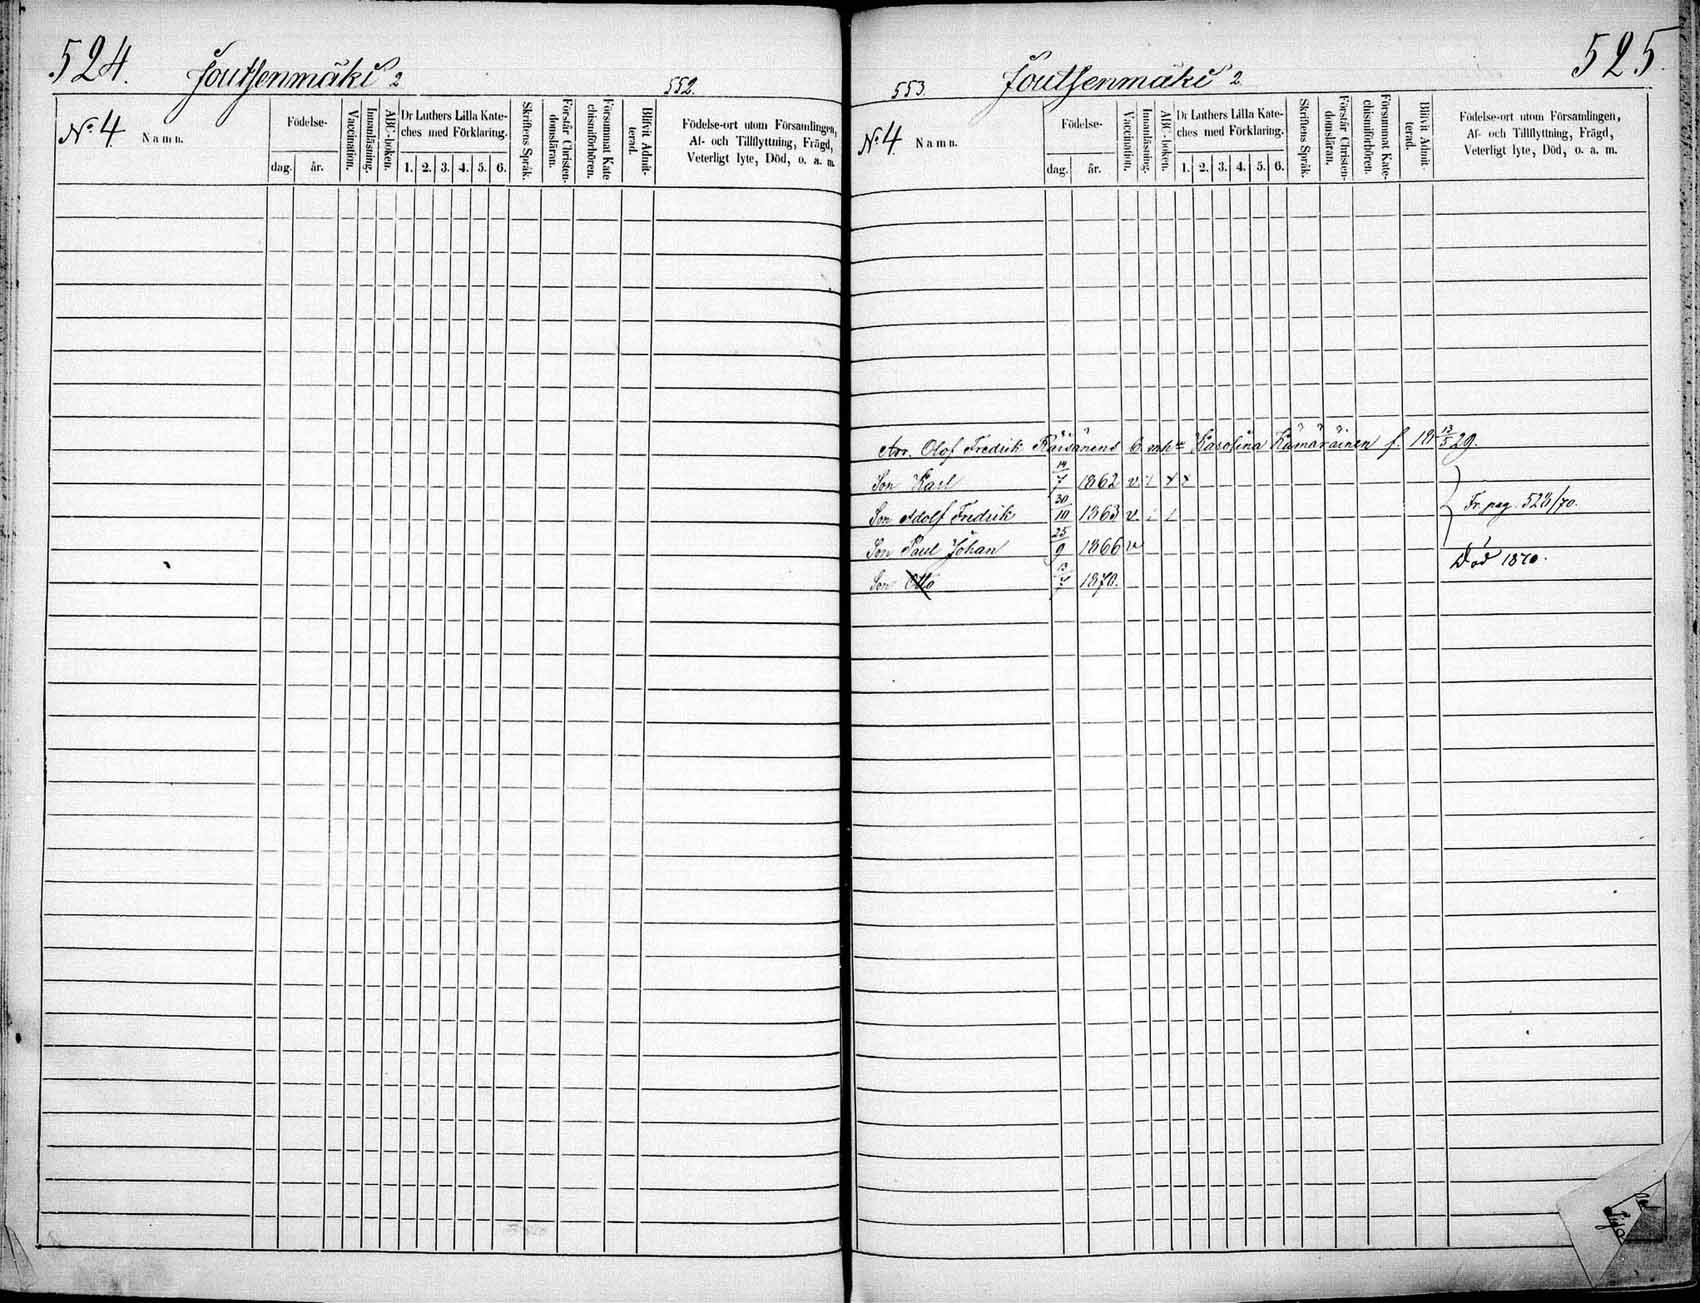 524.
Joutsenmäki 2
552.
No. 4
Namn.
Födelse-
dag.
år.
Vaccination.
Innanläsning.
ABC-boken.
Dr Luthers Lilla Kate-
ches med Förklaring.
1. 2. 3. 4. 5. 6.
Skriftens Språk.
Förstår Christen-
domsläran.
Försummat Kate
chismiförhören.
Blifvit Admit-
terad.
Födelse-ort utom Församlingen,
Af- och Tillflyttning, Frägd,
Veterligt lyte, Död, o. a. m.
525.
553.
Joutsenmäki 2
No. 4
Namn.
Födelse-
dag.
år.
Vaccination.
Innanläsning.
ABC-boken.
Dr Luthers Lilla Kate-
ches med Förklaring.
1. 2. 3. 4. 5. 6.
Skriftens Språk.
Förstår Christen-
domsläran.
Försummat Kate-
chismiförhören.
Blifvit Admit-
terad.
Födelse-ort utom Församlingen,
Af- och Tillflyttning, Frägd,
Veterligt lyte, Död, o. a. m.
Arr. Olof Fredrik Räisänens Karolina Kämäräinen f. 18 13/5 29.
Son Karl 1862 v
Son Adolf Fredrik 30/10 1863 v.
Son Paul Johan 25/9 1866 v
Fr. pag. 523/70.
Son Otto 1870.
Död 1870.